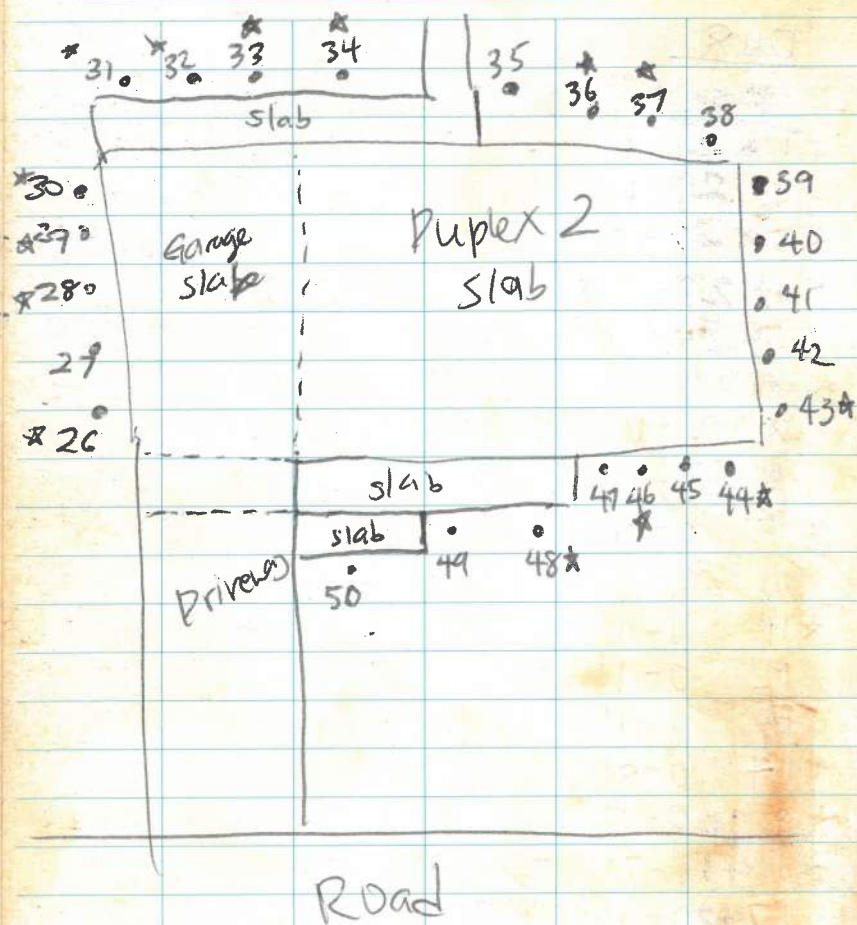 * 31 * 32 * 33 * 34 35 * 36 * 37 38
slab
* 30 39
Garage slab Duplex 2 slab
* 29 40
* 28 41
27 42
* 26 43 *
slab 47 46 * 45 44 *
slab 49 48 *
Driveway 50
Road